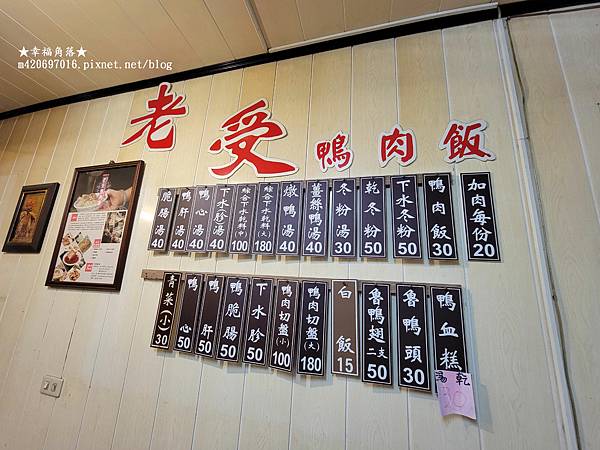 ★幸福角落★
m420697016.pixnet.net/blog
老受鴨肉飯
脆腸湯 40
鴨肝湯 40
鴨心湯 40
下水胗湯 40
綜合下水乾料(中) 100
綜合下水乾料(大) 180
燉鴨湯 40
薑絲鴨湯 40
冬粉湯 30
乾冬粉 50
下水冬粉 50
鴨肉飯 30
加肉每份 20
青菜(小) 30
鴨心 50
鴨肝 50
鴨脆腸 50
下水胗 50
鴨肉切盤(小) 100
鴨肉切盤(大) 180
白飯 15
魯鴨翅二支 50
魯鴨頭 30
鴨血糕
湯 乾
30